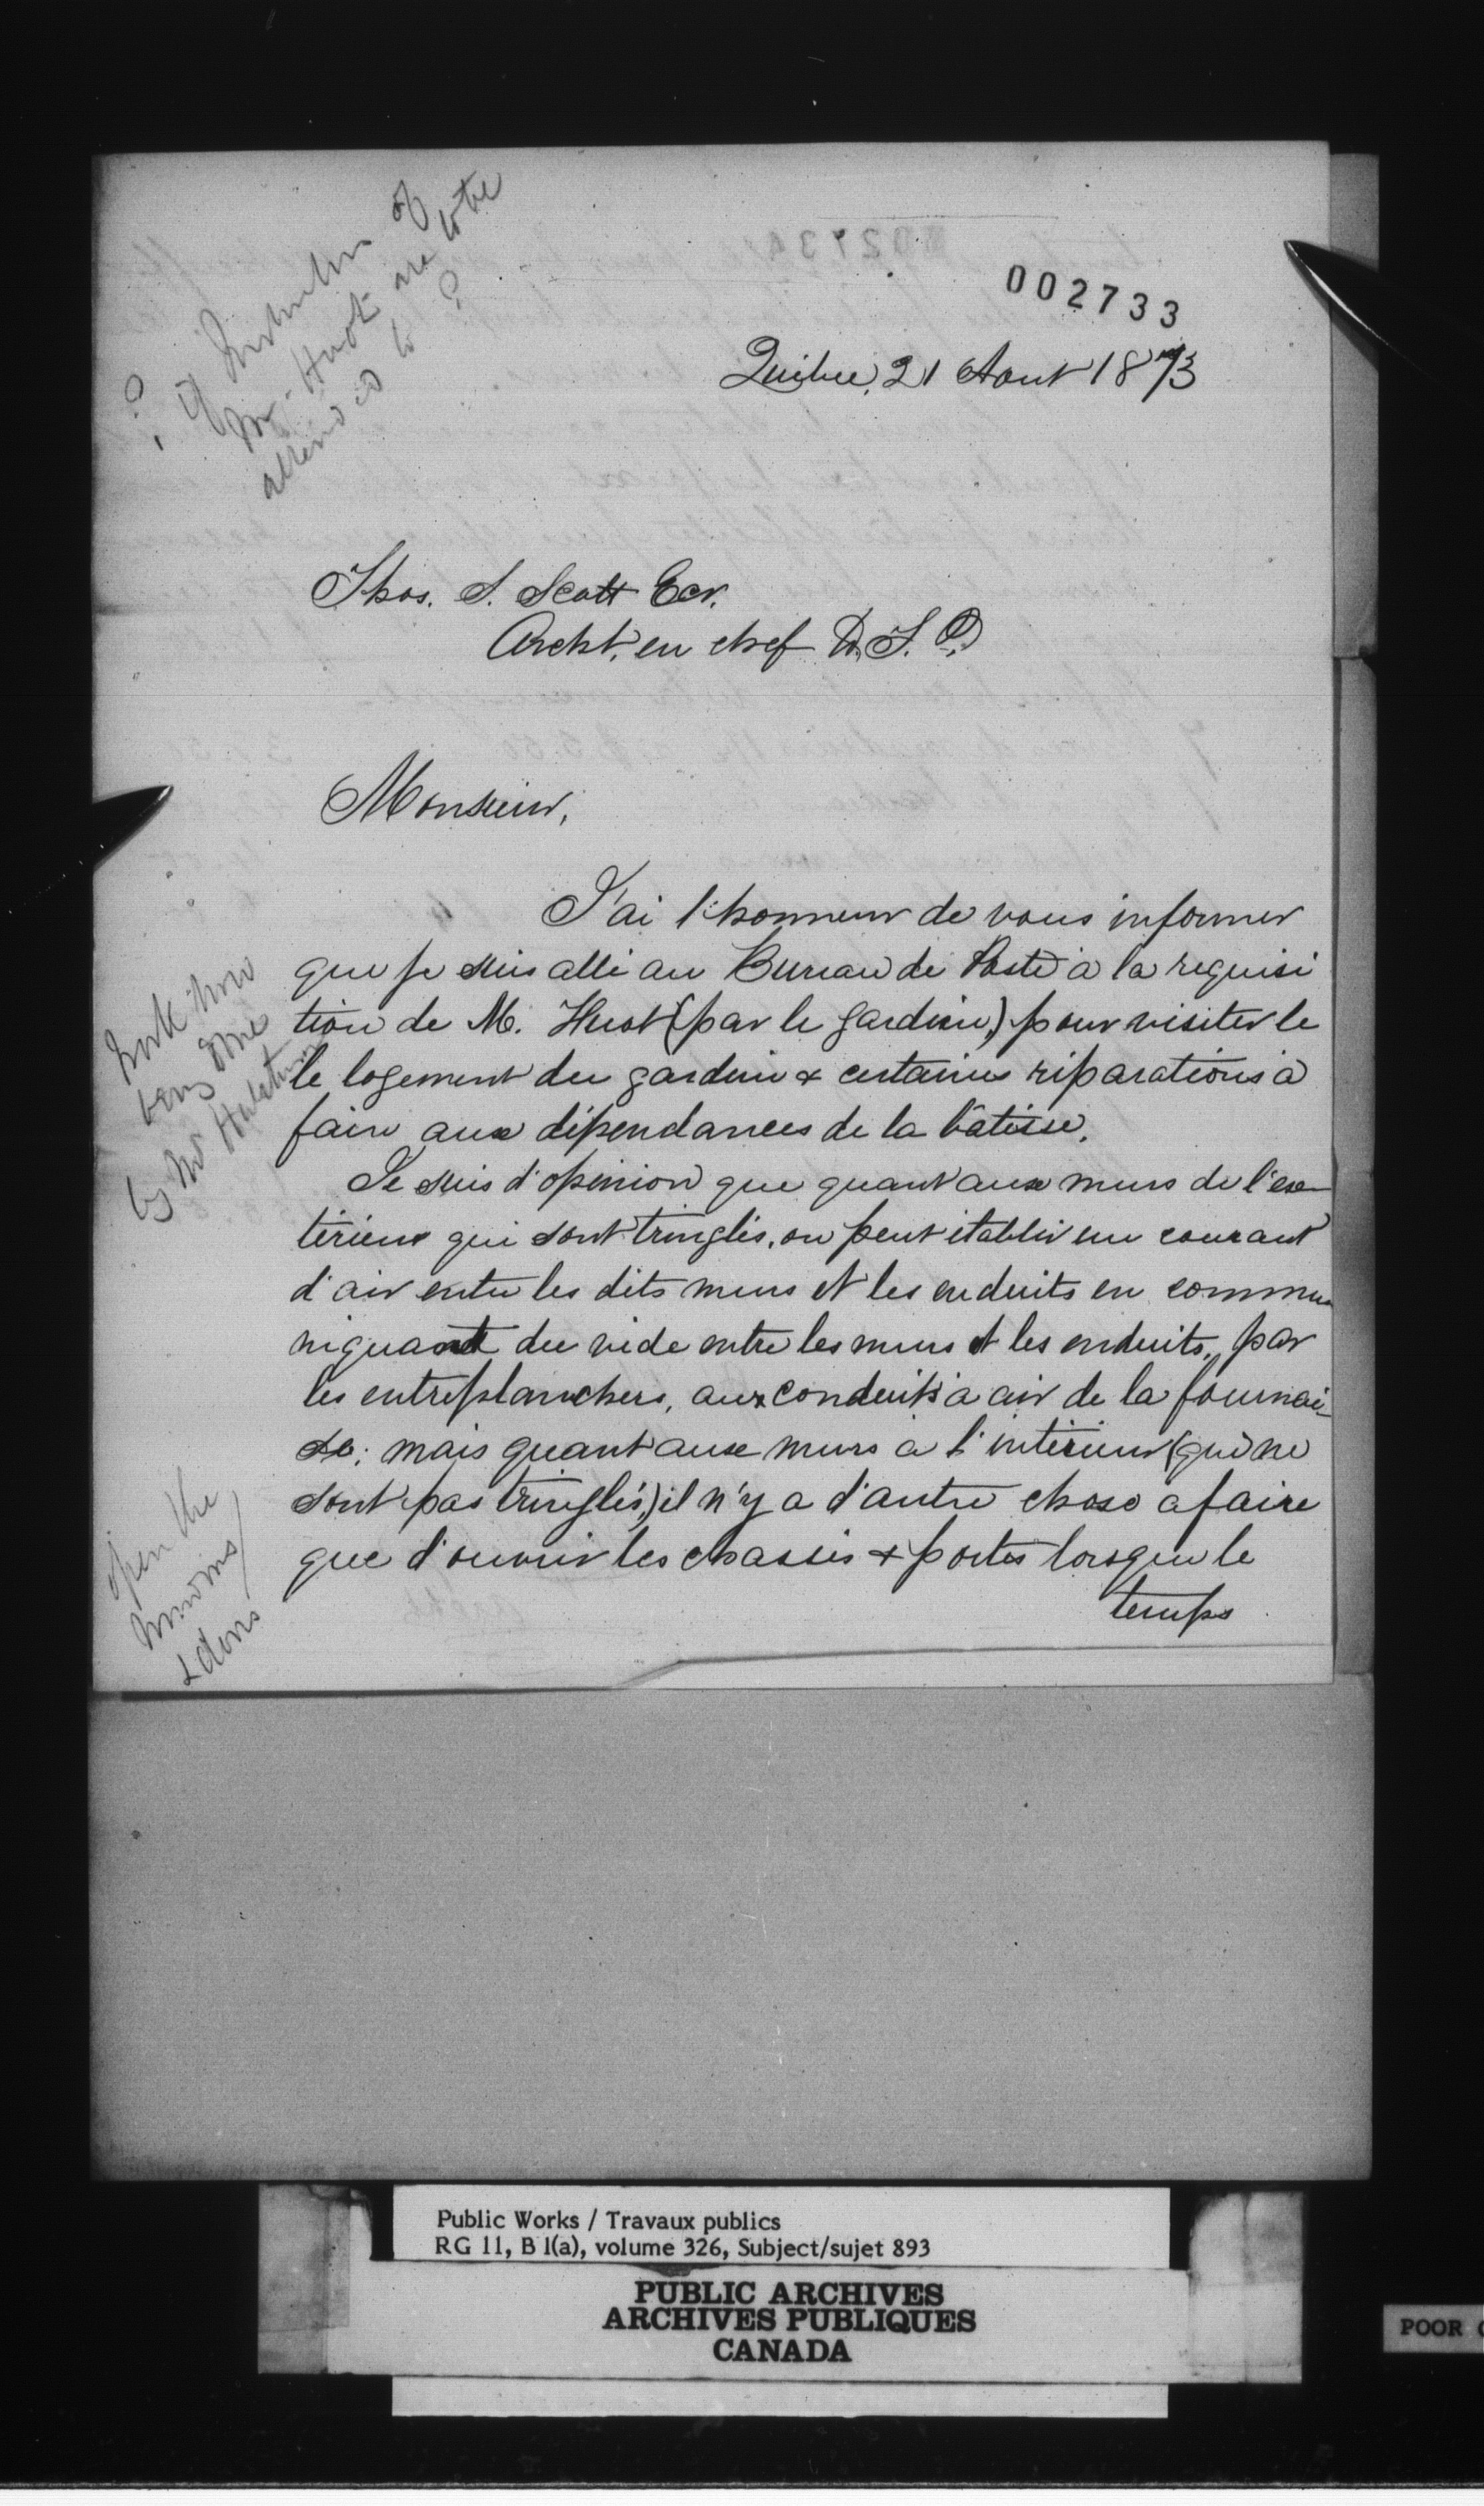 ? if Instruction of
Mr. Huot are to be
attended to ?
002733
Quebec, 21 Aout 1873
Thos. S. Scott Ecr.
Archt. en chef D. T. P.
Monsieur,
J'ai l'honneur de vous informer
que je suis allé au Bureau de Poste à la requisi
tion de M. Huot (par le gardien,) pour visiter le
le logement du gardien & certaines réparations à
faire aux dépendances de la bâtisse.
Je suis d'opinion que quant aux murs de l'ex-
térieur qui sont tringlés, on peut établir un courant
d'air entre les dits murs et les enduits en commu
niquant du vide entre les murs et les enduits, par
les entreplanchers, aux conduits à air de la fournai-
se; mais quant aux murs à l'intérieur (qui ne
sont pas tringlés,) il n'y a d'autre chose a faire
que d'ouvrir les chassis & portes lorsque le
temps
Work now
being done
by Mr
open the
windows
& doors
Public Works / Travaux publics
RG 11, B 1(a), volume 326, Subject/sujet 893
PUBLIC ARCHIVES
ARCHIVES PUBLIQUES
CANADA
POOR